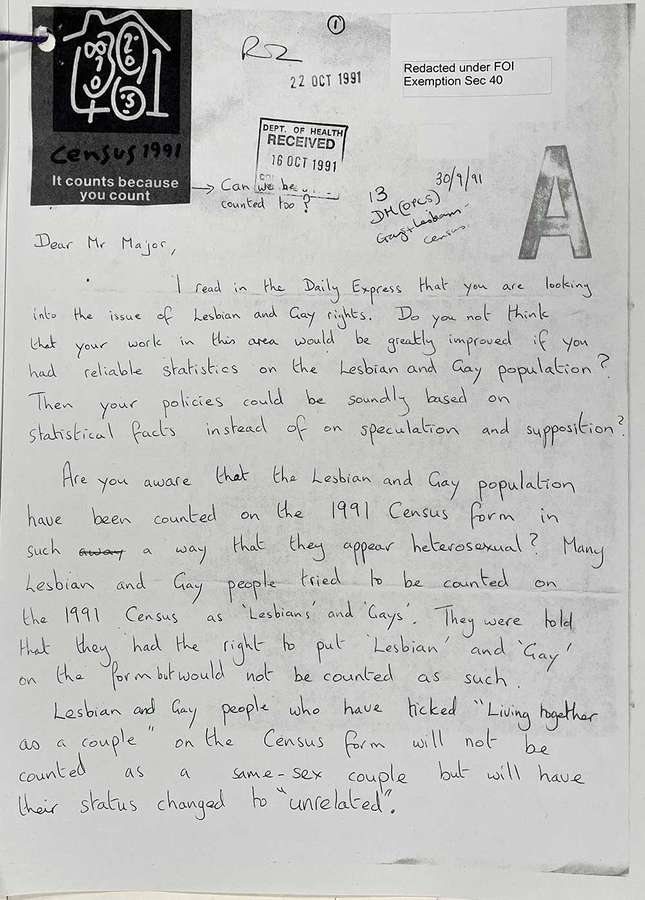 1
R52
22 OCT 1991
Redacted under FOI
Exemption Sec 40
DEPT. OF HEALTH
RECEIVED
16 OCT 1991
census 1991
It counts because
you count
→ Can we be
counted too?
30/9/91
13
DH (OPCS)
Gay + Lesbian -
census.
A
Dear Mr Major,
I read in the Daily Express that you are looking
into the issue of Lesbian and Gay rights. Do you not think
that your work in this area would be greatly improved if you
had reliable statistics on the Lesbian and Gay population?
Then your policies could be soundly based on
statistical facts instead of on speculation and supposition?
Are you aware that the Lesbian and Gay population
have been counted on the 1991 Census form in
such away a way that they appear heterosexual? Many
Lesbian and Gay people tried to be counted on
the 1991 Census as 'Lesbians' and 'Gays'. They were told
that they had the right to put 'Lesbian' and 'Gay'
on the form but would not be counted as such.
Lesbian and Gay people who have ticked "Living together
as a couple" on the Census form will not be
counted as a same-sex couple but will have
their status changed to "unrelated".